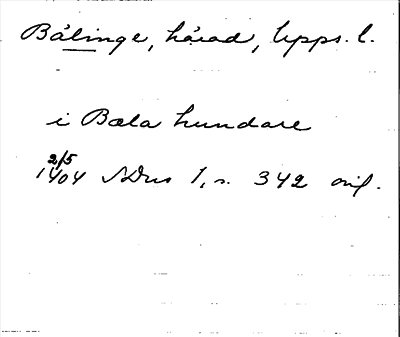 Bälinge, härad, Upps. l.
i Bæla hundare
2/5
1404 SDns 1, s. 342 orig.